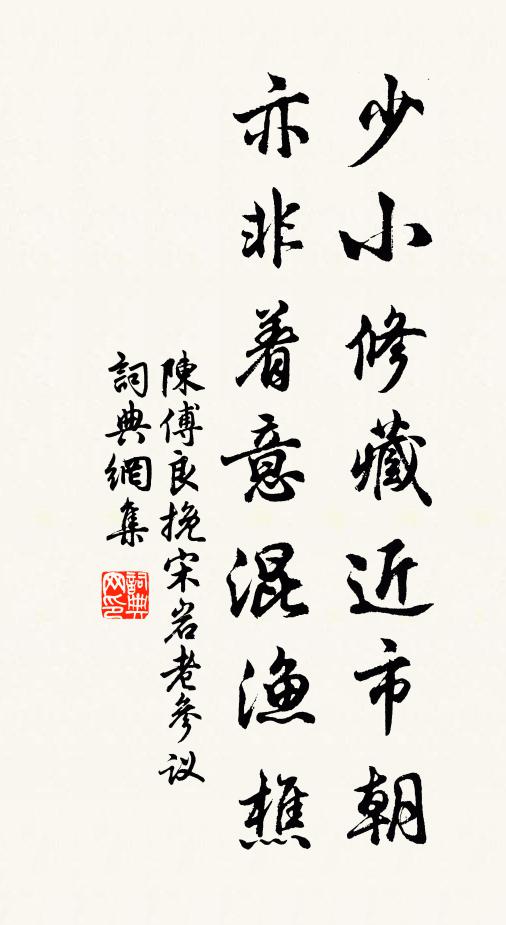 少小修藏近市朝
亦非着意混漁樵
陳傅良挽宋岩老參议
詞典網集
詞典网印